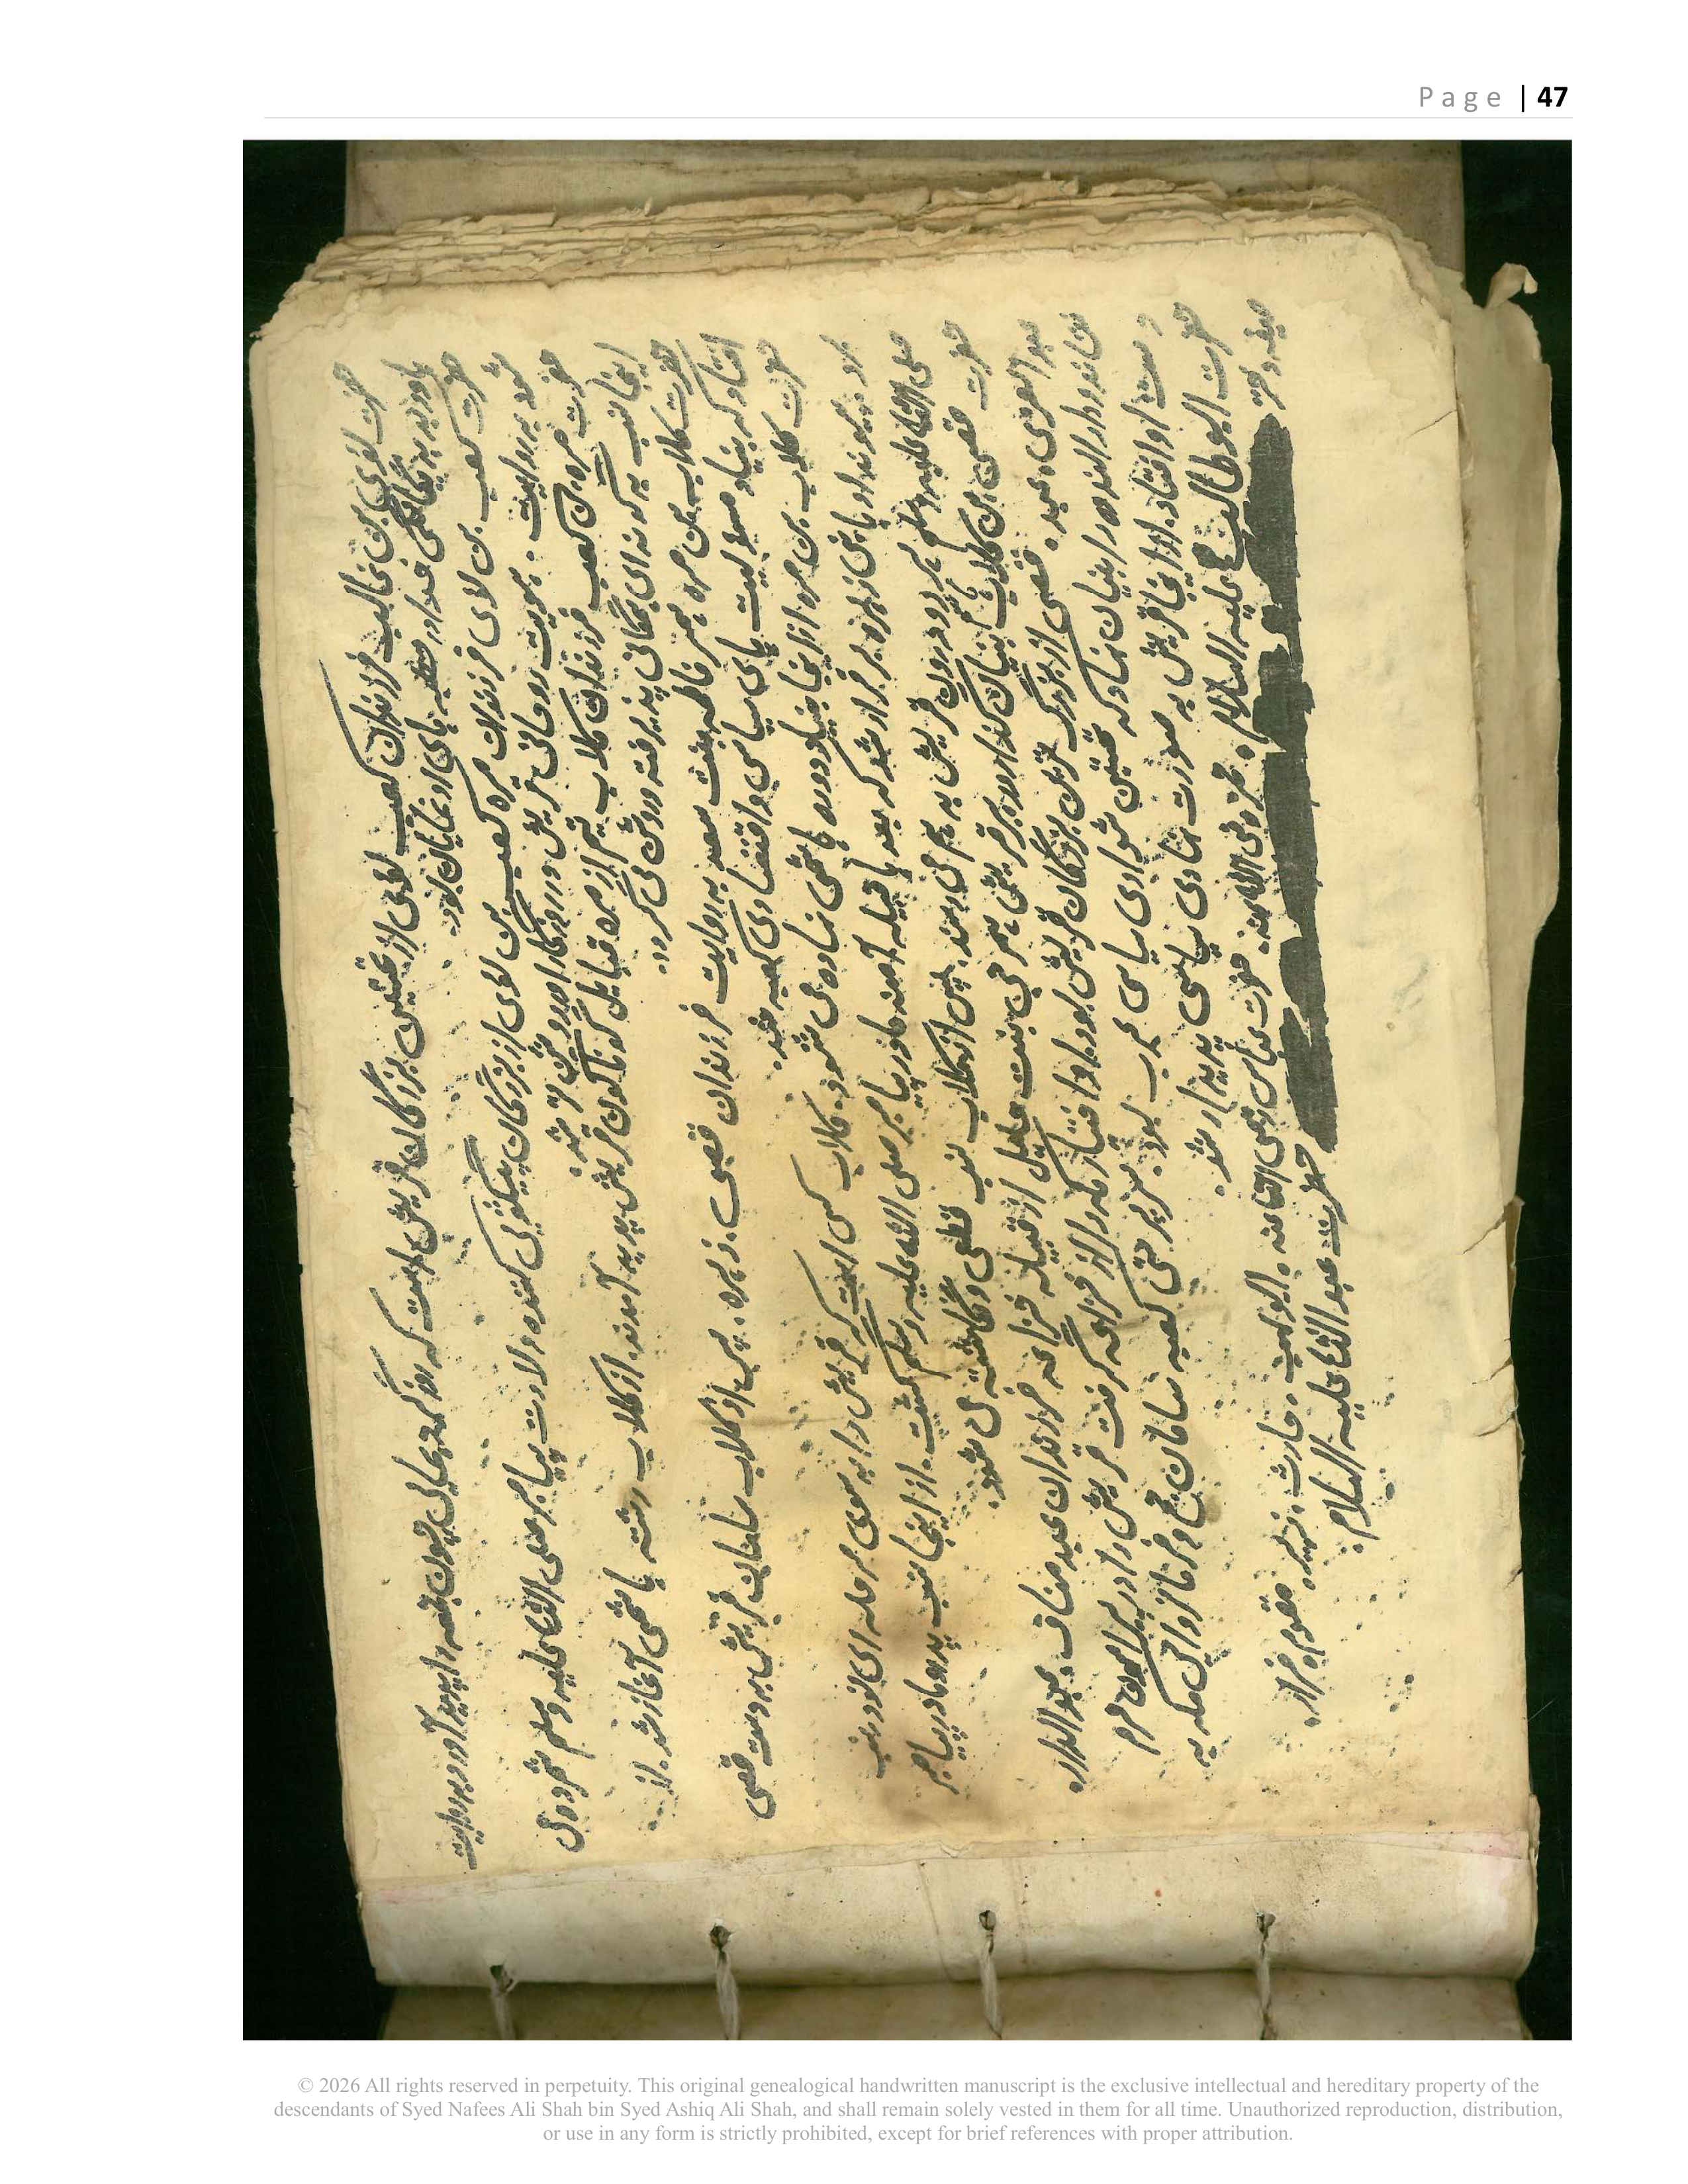 Page | 47
حضرت لوی بن غالب فرزندان کعب لوی از نخستین بزرگان قریش است که روزگار
باور به یگانگی خدا در خطبه های او نمایان بود.
حضرت کعب بن لای فرزندان مره کعب بن لوی از بزرگان پیشگویی کننده ولادت پیامبر صلی الله علیه وسلم شمرده می
شود به روایت. هویت روحانی قریش در روزگار او روشن تر شد.
حضرت مره بن کعب فرزندان کلاب تیم از مره قبایل گوناگون قریش پدید آمدند. از کلاب رشته هاشمی آغاز شد. از
اینجا نسب به گونه ای همگانی پذیرفته و روشن می گردد.
حضرت کلاب بن مره همسر فاطمه بنت سعد به روایت فرزندان قصی. زهره. پس از کلاب سامان قریش به دست قصی
افتاد که بنیاد مسؤلیت های سیاسی و اقتصادی کعبه شد.
حضرت کلاب بن مره از اینجا بنیاد دوره هاشمی نهاده می شود. کلاب کسی است که قریش را به سوی مرحله ای
برد. پیوند او با بنی زهره برقرار شد که بعد ها قبیله آمنه مادر پیامبر صلی الله علیه وسلم گشت. از اینجا نسب پدر و مادر پیامبر
صلی الله علیه وسلم هر دو درون قریش به هم می رسند. پس از کلاب نسب قطعی و نگاشته می شود.
حضرت قصی بن کلاب بنیان گذار قریش همسر حبی بنت حلیل از قبیله خزاعه فرزندان عبد مناف. عبد الدار.
عبد العزی. عبد. قصی از بزرگ ترین بزرگان قریش بود. او اختیار مکه را از خزاعه گرفت قریش را در پیرامون حرم
نشاند و دار الندوه را بنیان نهاد که نخستین شورای سیاسی عرب بود. سرپرستی کعبه سامان حج و فرمانروایی مکه به
دست او افتاد. از اینجا قریش به صورت نهادی سیاسی پدیدار شد.
حضرت ابو طالب علیه السلام. حمزه رضی الله عنه. حضرت عباس رضی الله عنه. ابو لهب. حارث. زبیر. مقوم. ضرار.
حضرت عبد الله علیه السلام.
© 2026 All rights reserved in perpetuity. This original genealogical handwritten manuscript is the exclusive intellectual and hereditary property of the
descendants of Syed Nafees Ali Shah bin Syed Ashiq Ali Shah, and shall remain solely vested in them for all time. Unauthorized reproduction, distribution,
or use in any form is strictly prohibited, except for brief references with proper attribution.